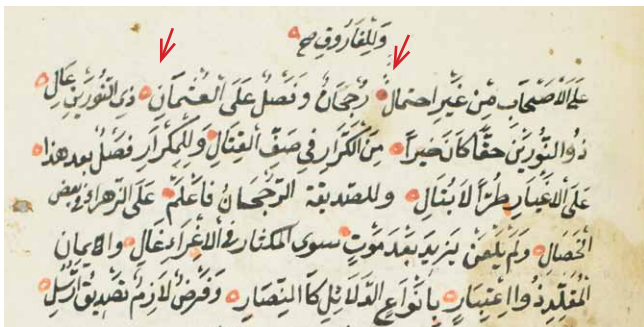 وَلِلْفَارُوقِ
عَلَى الْأَصْحَابِ مِنْ غَيْرِ احتمالْ رُجْحَانٌ وَفَضْلٌ عَلَى الْعُثْمَانِ ذِي النُّورَيْنِ عَالِ
ذُو النُّورَيْنِ حَقًّا كَانَ خَيْرًا مِنَ الْكَرَّارِ فِي صَفِّ الْقِتَالِ وَلِلْكَرَّارِ فَضْلٌ بعد هذا
عَلَى الْاَغْيَارِ طُرًّا لَا تُبَالِ وللصديقة الرُّجْحَانُ فَاعْلَمْ عَلَى الزَّهراءِ في بعض
الْخِصَالِ وَلَمْ يَلْعَنْ يَزِيدَ بَعْدَ مَوْتٍ سوى المكثار في الْاِغْرَاءِ غَالِ والايمان
الْمُقَلِّدِ ذُوا اعْتِبَارٍ بِاَنْوَاعِ الدَّلَائِلِ وَفَرْضٌ لَازِمٌ تَصْدِيقُ رُسْلٍ